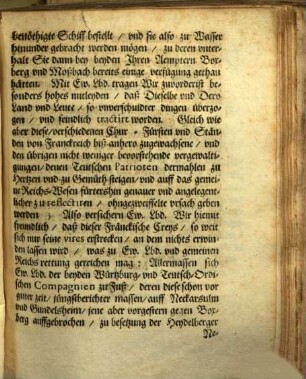 benöthigte Schiff bestelle / und sie also zu Wasser
hinunder gebracht werden mögen / zu deren unter-
halt Sie dann bey beyden Ihren Aemptern Box-
berg und Moßbach bereits einige verfügung gethan
hätten. Mit Ew. Lbd. tragen Wir zuvorderist be-
sonders hohes mitleyden / daß Dieselbe und Dero
Land und Leute / so unverschuldter dingen überzo-
gen / und feindlich tractirt worden. Gleich wie
aber diese / verschiedenen Chur- Fürsten und Stän-
den von Franckreich biß anhero zugewachsene / und
den übrigen nicht weniger bevorstehende vergewalti-
gungen / denen Teutschen Patrioten dermahlen zu
Hertzen und zu Gemütz steigen / und auff das gemei-
ne Reichs-Wesen fürtershin genauer und angelegent-
licher zu reflectiren / ohngezweiffelte ursach geben
werden; Also versichern Ew. Lbd. Wir hiemit
freundlich / daß dieser Fränckische Creys / so weit
sich nur seine vires erstrecken / an dem nichts erwin-
den lassen wird / was zu Ew. Lbd. und gemeinen
Reichs rettung gereichen mag: Allermassen sich
Ew. Lbd. der beyden Würtzburg- und Teutsch-Ordi-
schen Compagnien zu Fuß / deren diese schon vor
guter zeit / jüngstberichter massen / auff Neckarsulm
und Gundelsheim / jene aber vorgestern gegen Box-
berg auffgebrochen / zu besetzung der Heydelberger
Ne-